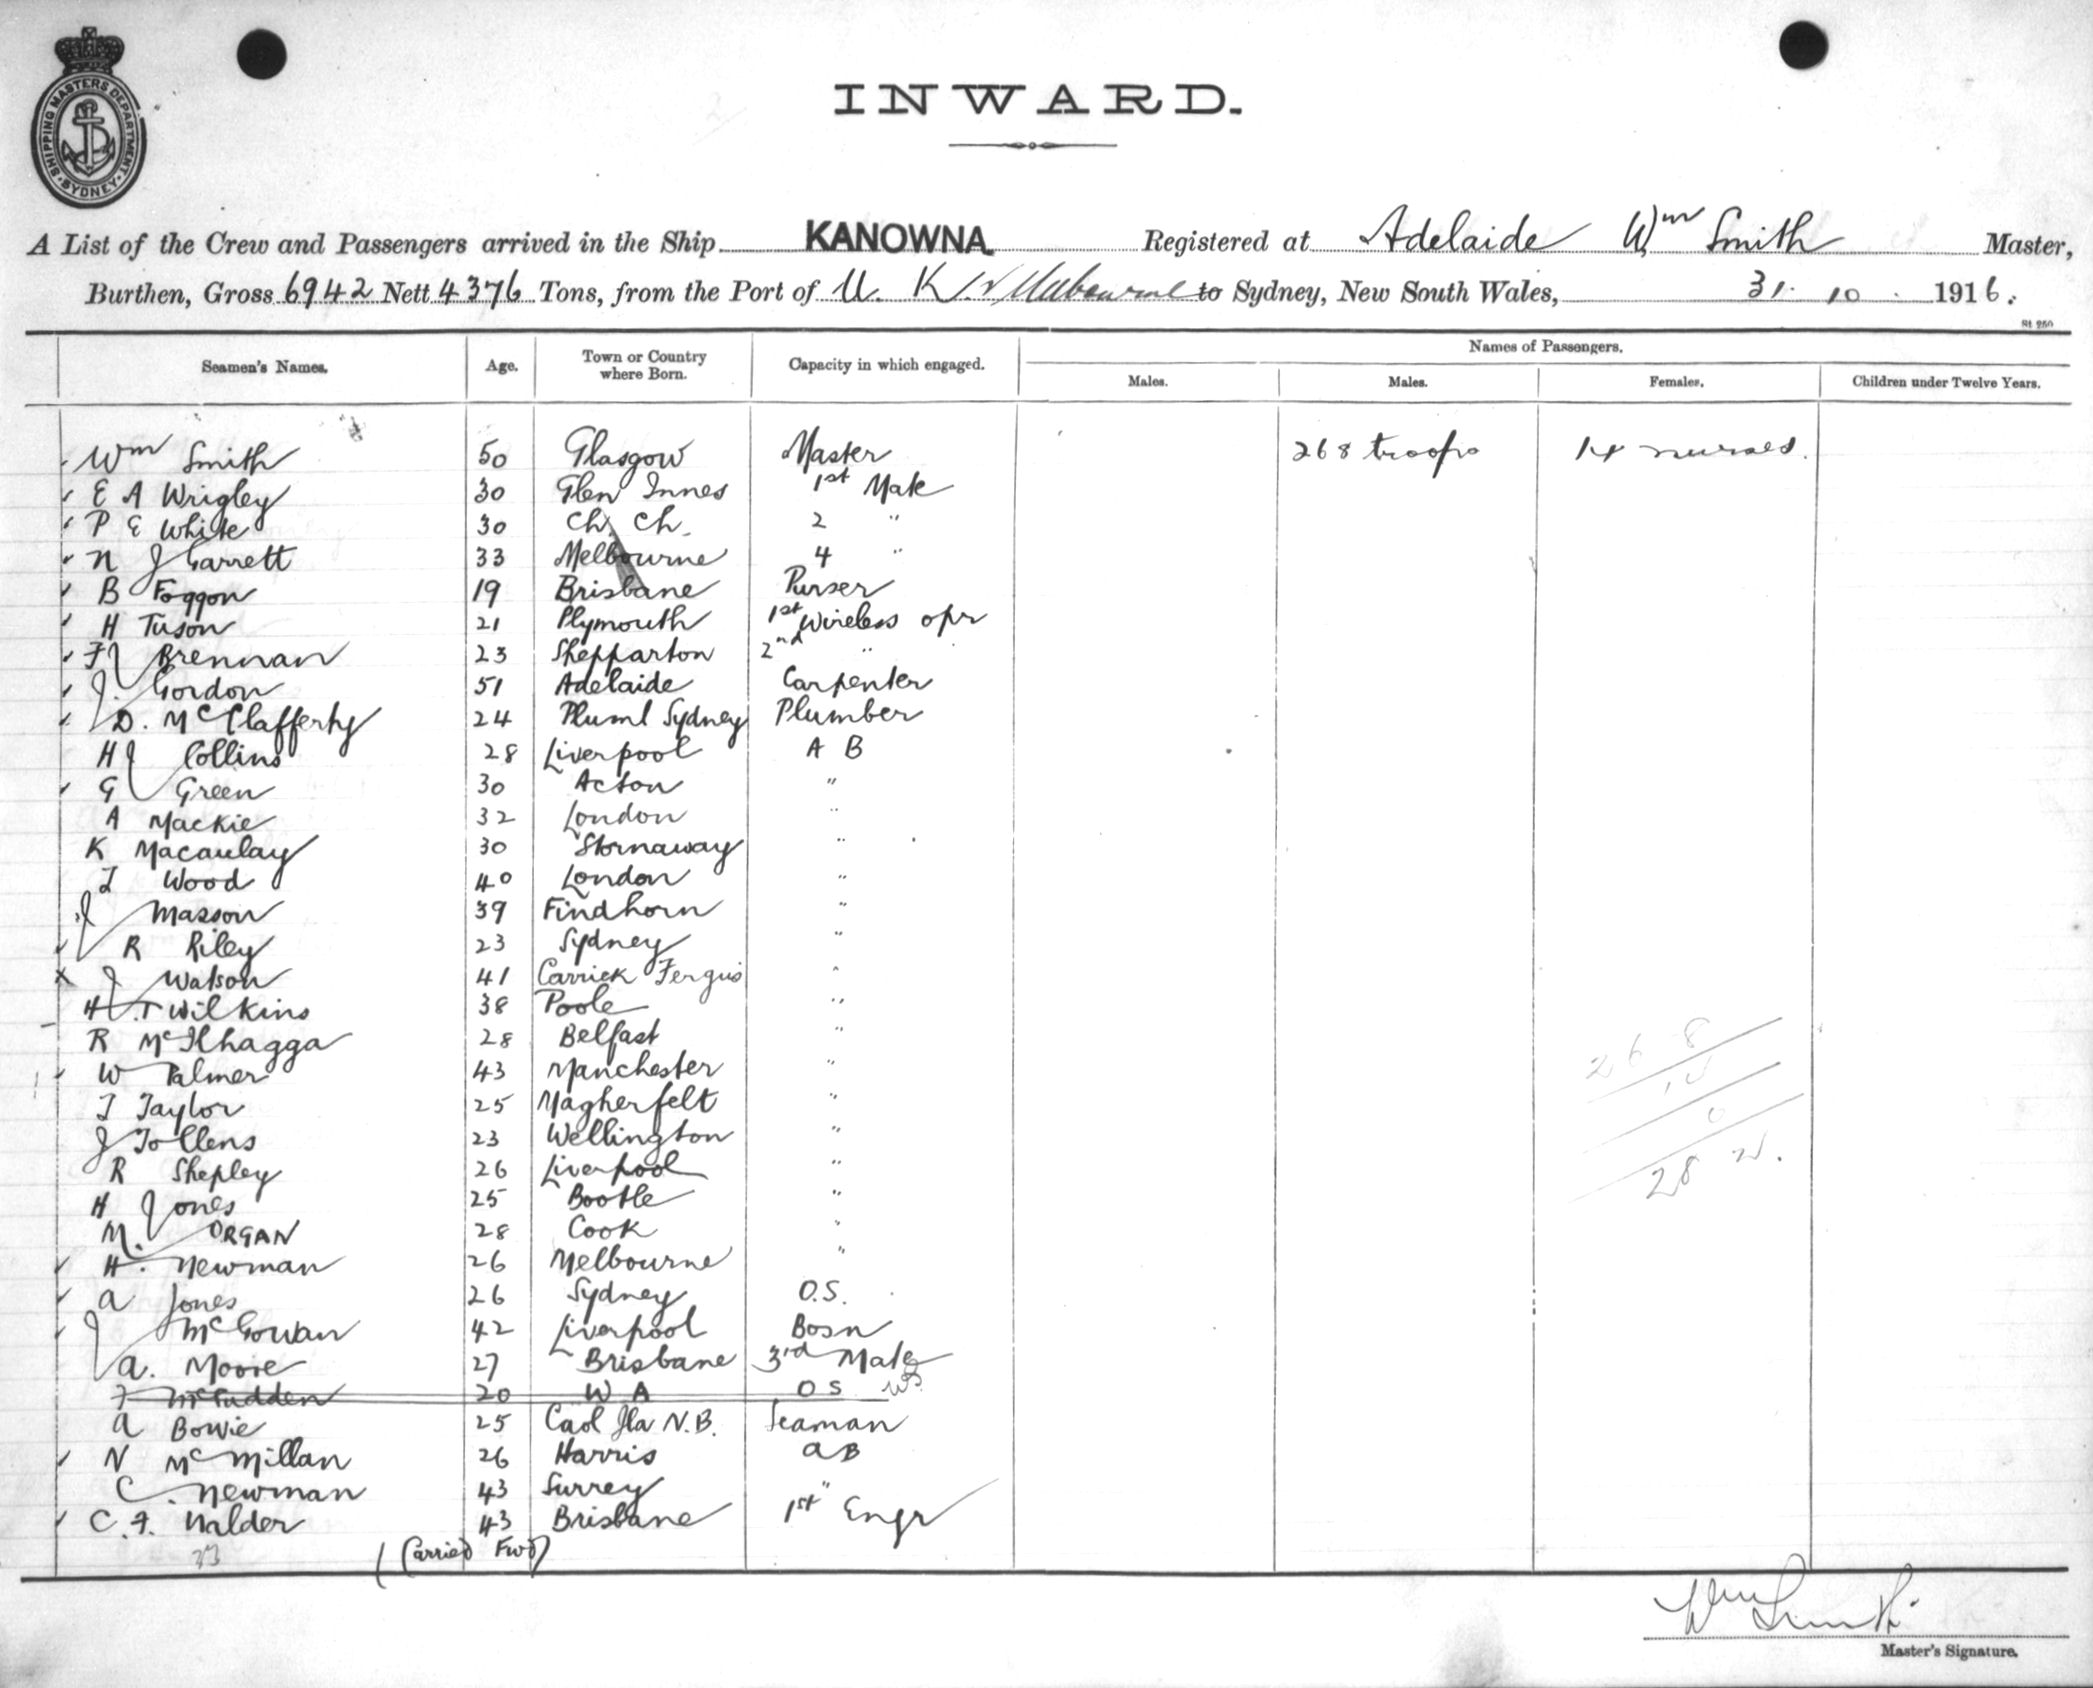 SHIPPING MASTERS DEPARTMENT
SYDNEY
INWARD.
A List of the Crew and Passengers arrived in the Ship KANOWNA Registered at Adelaide Wm Smith Master,
Burthen, Gross 6942 Nett 4376 Tons, from the Port of U. K. v Melbourne to Sydney, New South Wales, 31. 10. 1916.
St 250
Seamen's Names. Age. Town or Country where Born. Capacity in which engaged. Names of Passengers.
Males. Males. Females. Children under Twelve Years.
Wm Smith 50 Glasgow Master 268 troops 14 nurses.
E A Wrigley 30 Glen Innes 1st Mate
P E White 30 Ch. Ch. 2 "
N J Garrett 33 Melbourne 4 "
B Foggon 19 Brisbane Purser
H Tuson 21 Plymouth 1st Wireless opr
F J Brennan 23 Shepparton 2nd "
J. Gordon 51 Adelaide Carpenter
D. McClafferty 24 Sydney Plumber
H J Collins 28 Liverpool A B
G Green 30 Acton "
A Mackie 32 London "
K Macaulay 30 Stornaway "
T Wood 40 London "
J Masson 39 Findhorn "
R Riley 23 Sydney "
J Watson 41 Carrick Fergus "
H. T Wilkins 38 Poole "
R McIlhagga 28 Belfast "
W Palmer 43 Manchester "
T Taylor 25 Magherfelt "
J Tollens 23 Wellington "
R Shepley 26 Liverpool "
H Jones 25 Bootle "
M. ORGAN 28 Cook "
H. Newman 26 Melbourne "
A Jones 26 Sydney O.S.
J McGowan 42 Liverpool Bosn
A. Moore 27 Brisbane 3rd Mate
F McFadden 20 W A O S WS
A Bowie 25 Caol Ila N.B. Seaman
N McMillan 26 Harris A B
C. Newman 43 Surrey "
C. F. Nalder 43 Brisbane 1st Engr
33 (Carried Fwd)
268
14
0
282.
Wm Smith
Master's Signature.